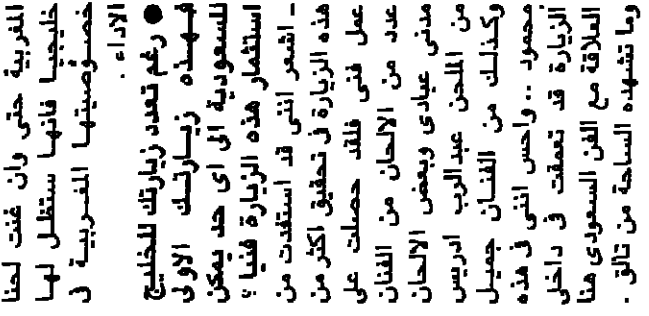 المغربية حتى وان غنت لحنا
خليجيا فانها ستظل لها
خصوصيتها المغربية في
الاداء .
● رغم تعدد زيارتك للخليج
فهذه زيارتك الاولى
للسعودية الى اى حد يمكن
استثمار هذه الزيارة فنيا ؟
- اشعر اننى قد استفدت من
هذه الزيارة في تحقيق اكثر من
عمل فنى فلقد حصلت على
عدد من الالحان من الفنان
مدنى عبادى وبعض الالحان
من الملحن عبدالرب ادريس
وكذلك من الفنان جميل
محمود .. واحس اننى في هذه
الزيارة قد تعمقت في داخلى
العلاقة مع الفن السعودى هنا
وما تشهده الساحة من تالق .